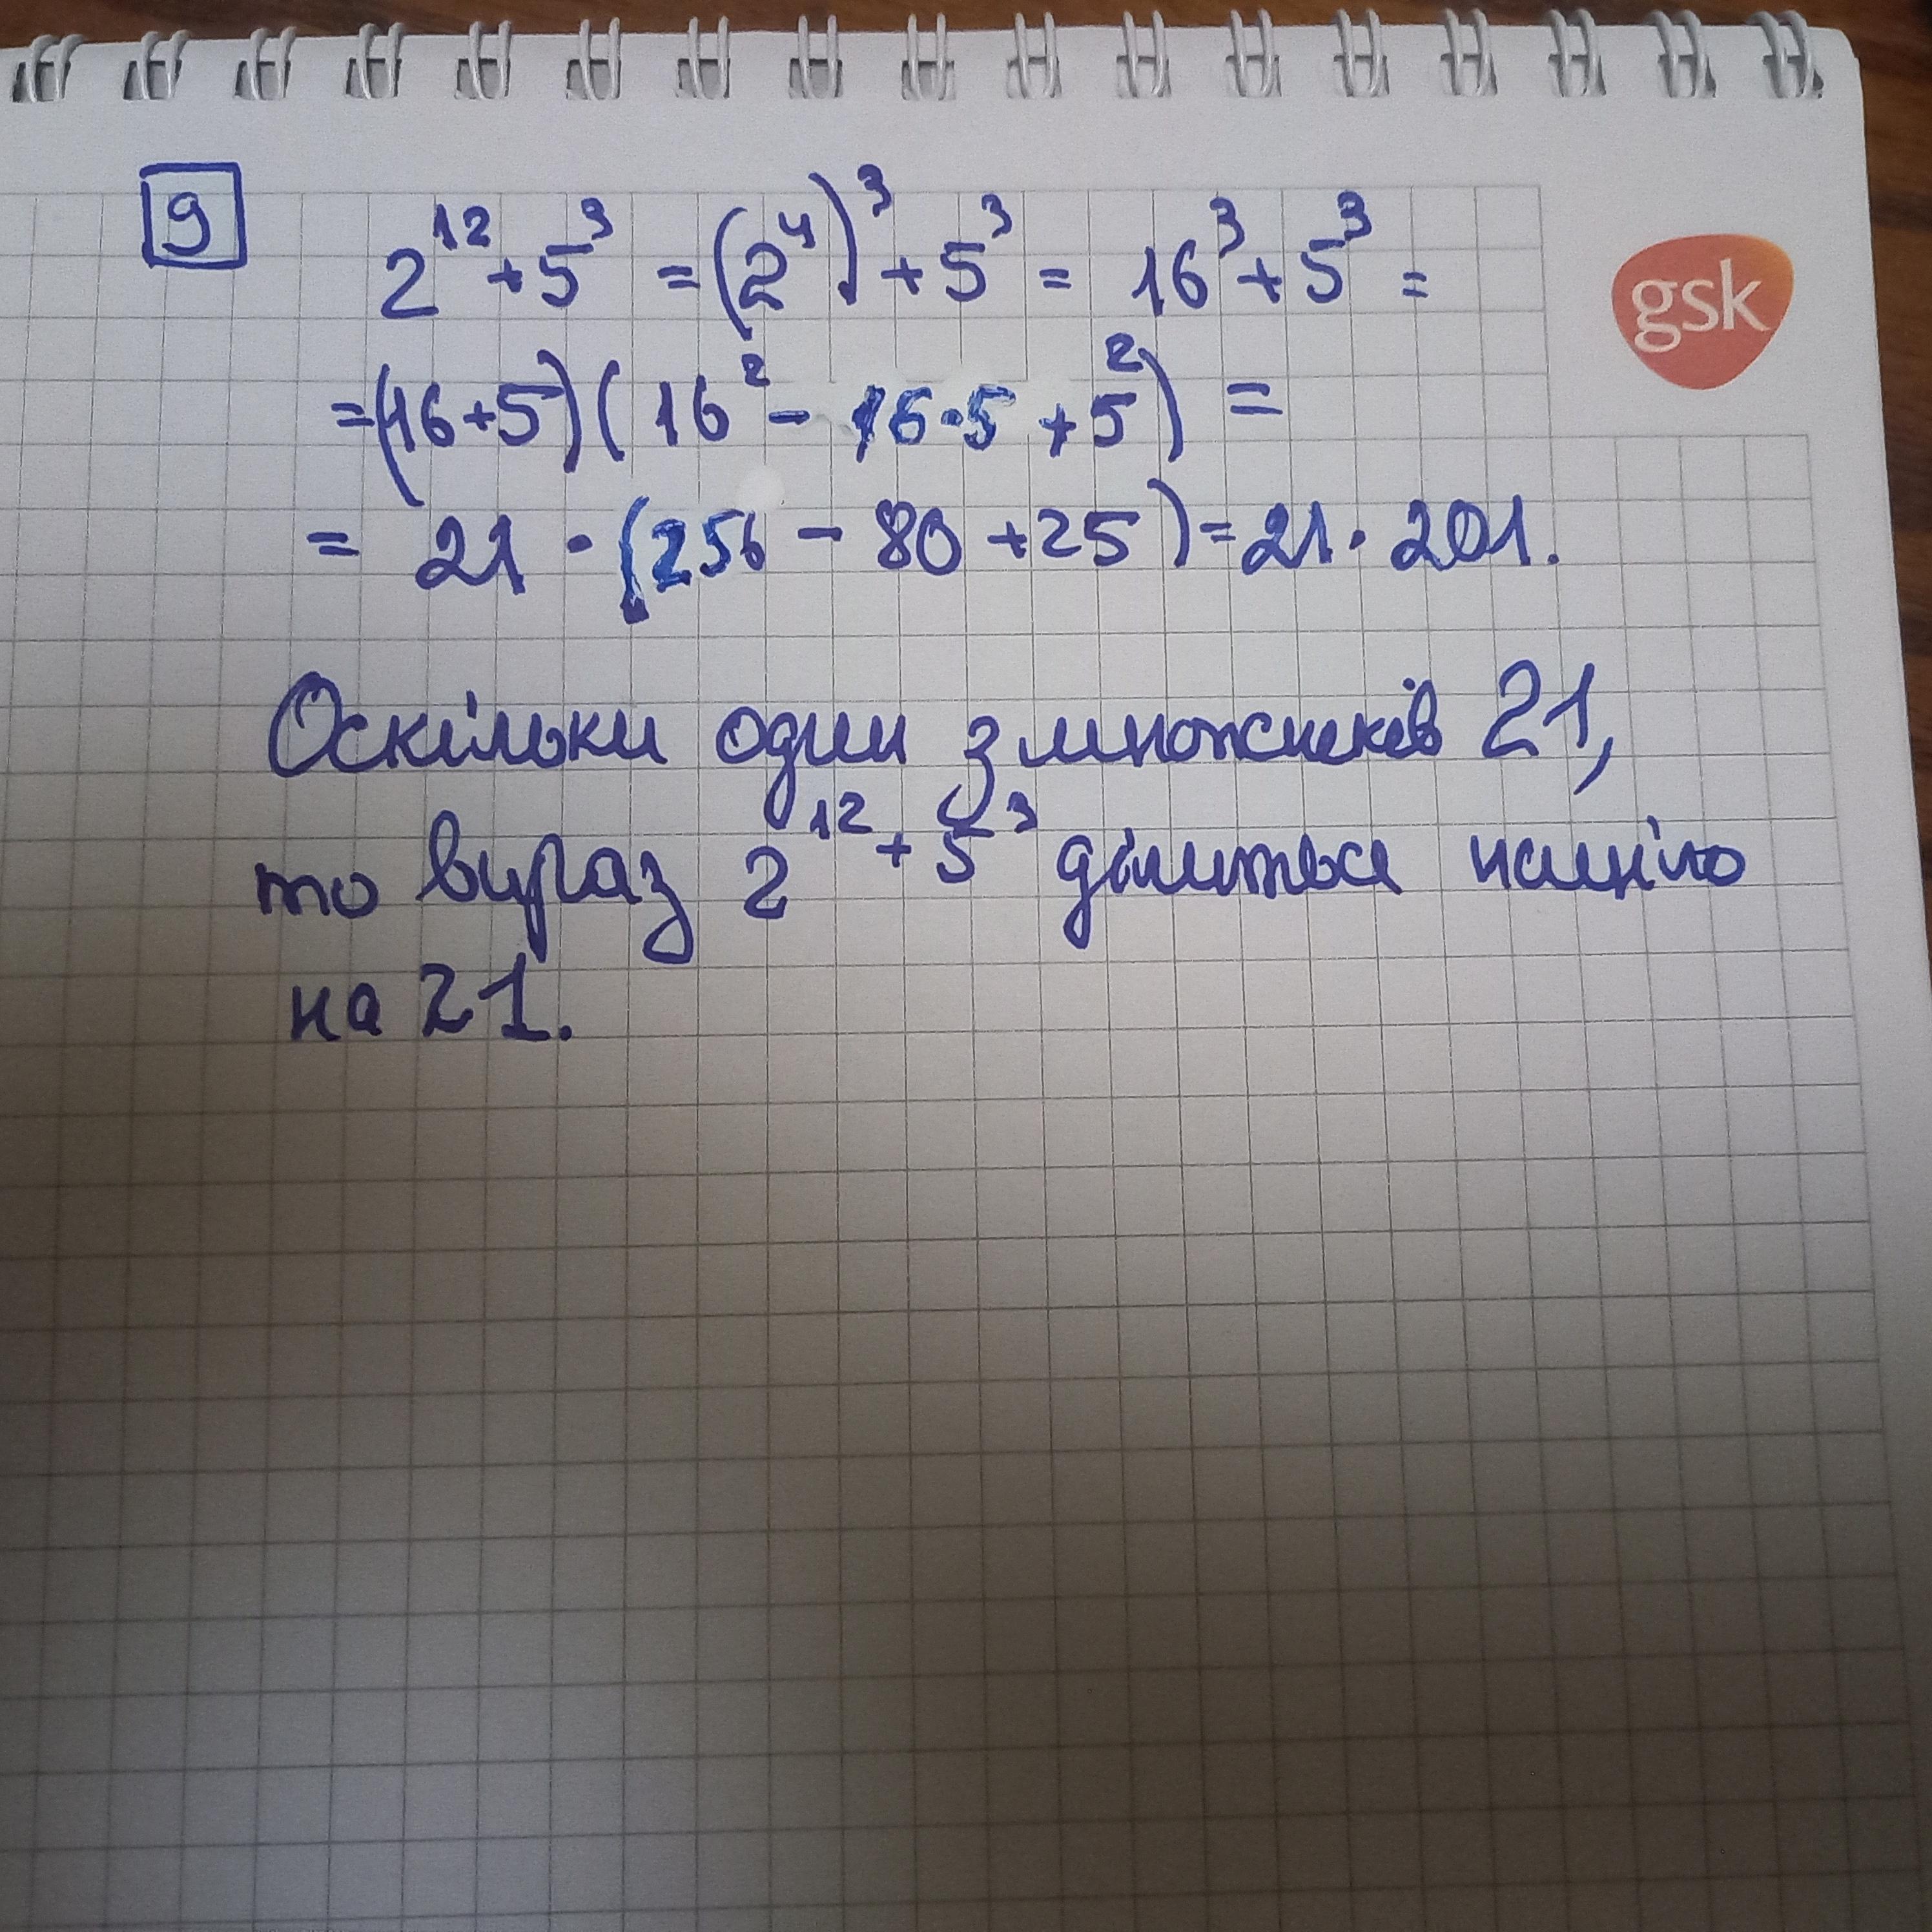 9
2¹² + 5³ = (2⁴)³ + 5³ = 16³ + 5³ =
gsk
= (16+5)(16² - 16·5 + 5²) =
= 21 · (256 - 80 + 25) = 21 · 201.
Оскільки один з множників 21,
то вираз 2¹² + 5³ ділиться націло
на 21.